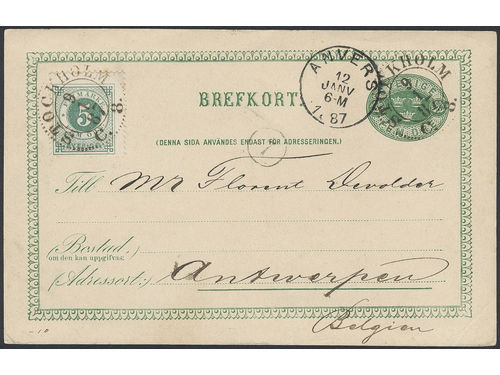 STOCKHOLM
5
ANVERS
12
JANV
6-M
87
STOCKHOLM
BREFKORT.
(DENNA SIDA ANVÄNDES ENDAST FÖR ADRESSERINGEN.)
1
Till Mr Florent Devolder
(Bostad.)
om den kan uppgifvas;
(Adressort:) Antwerpen
Belgien
-10